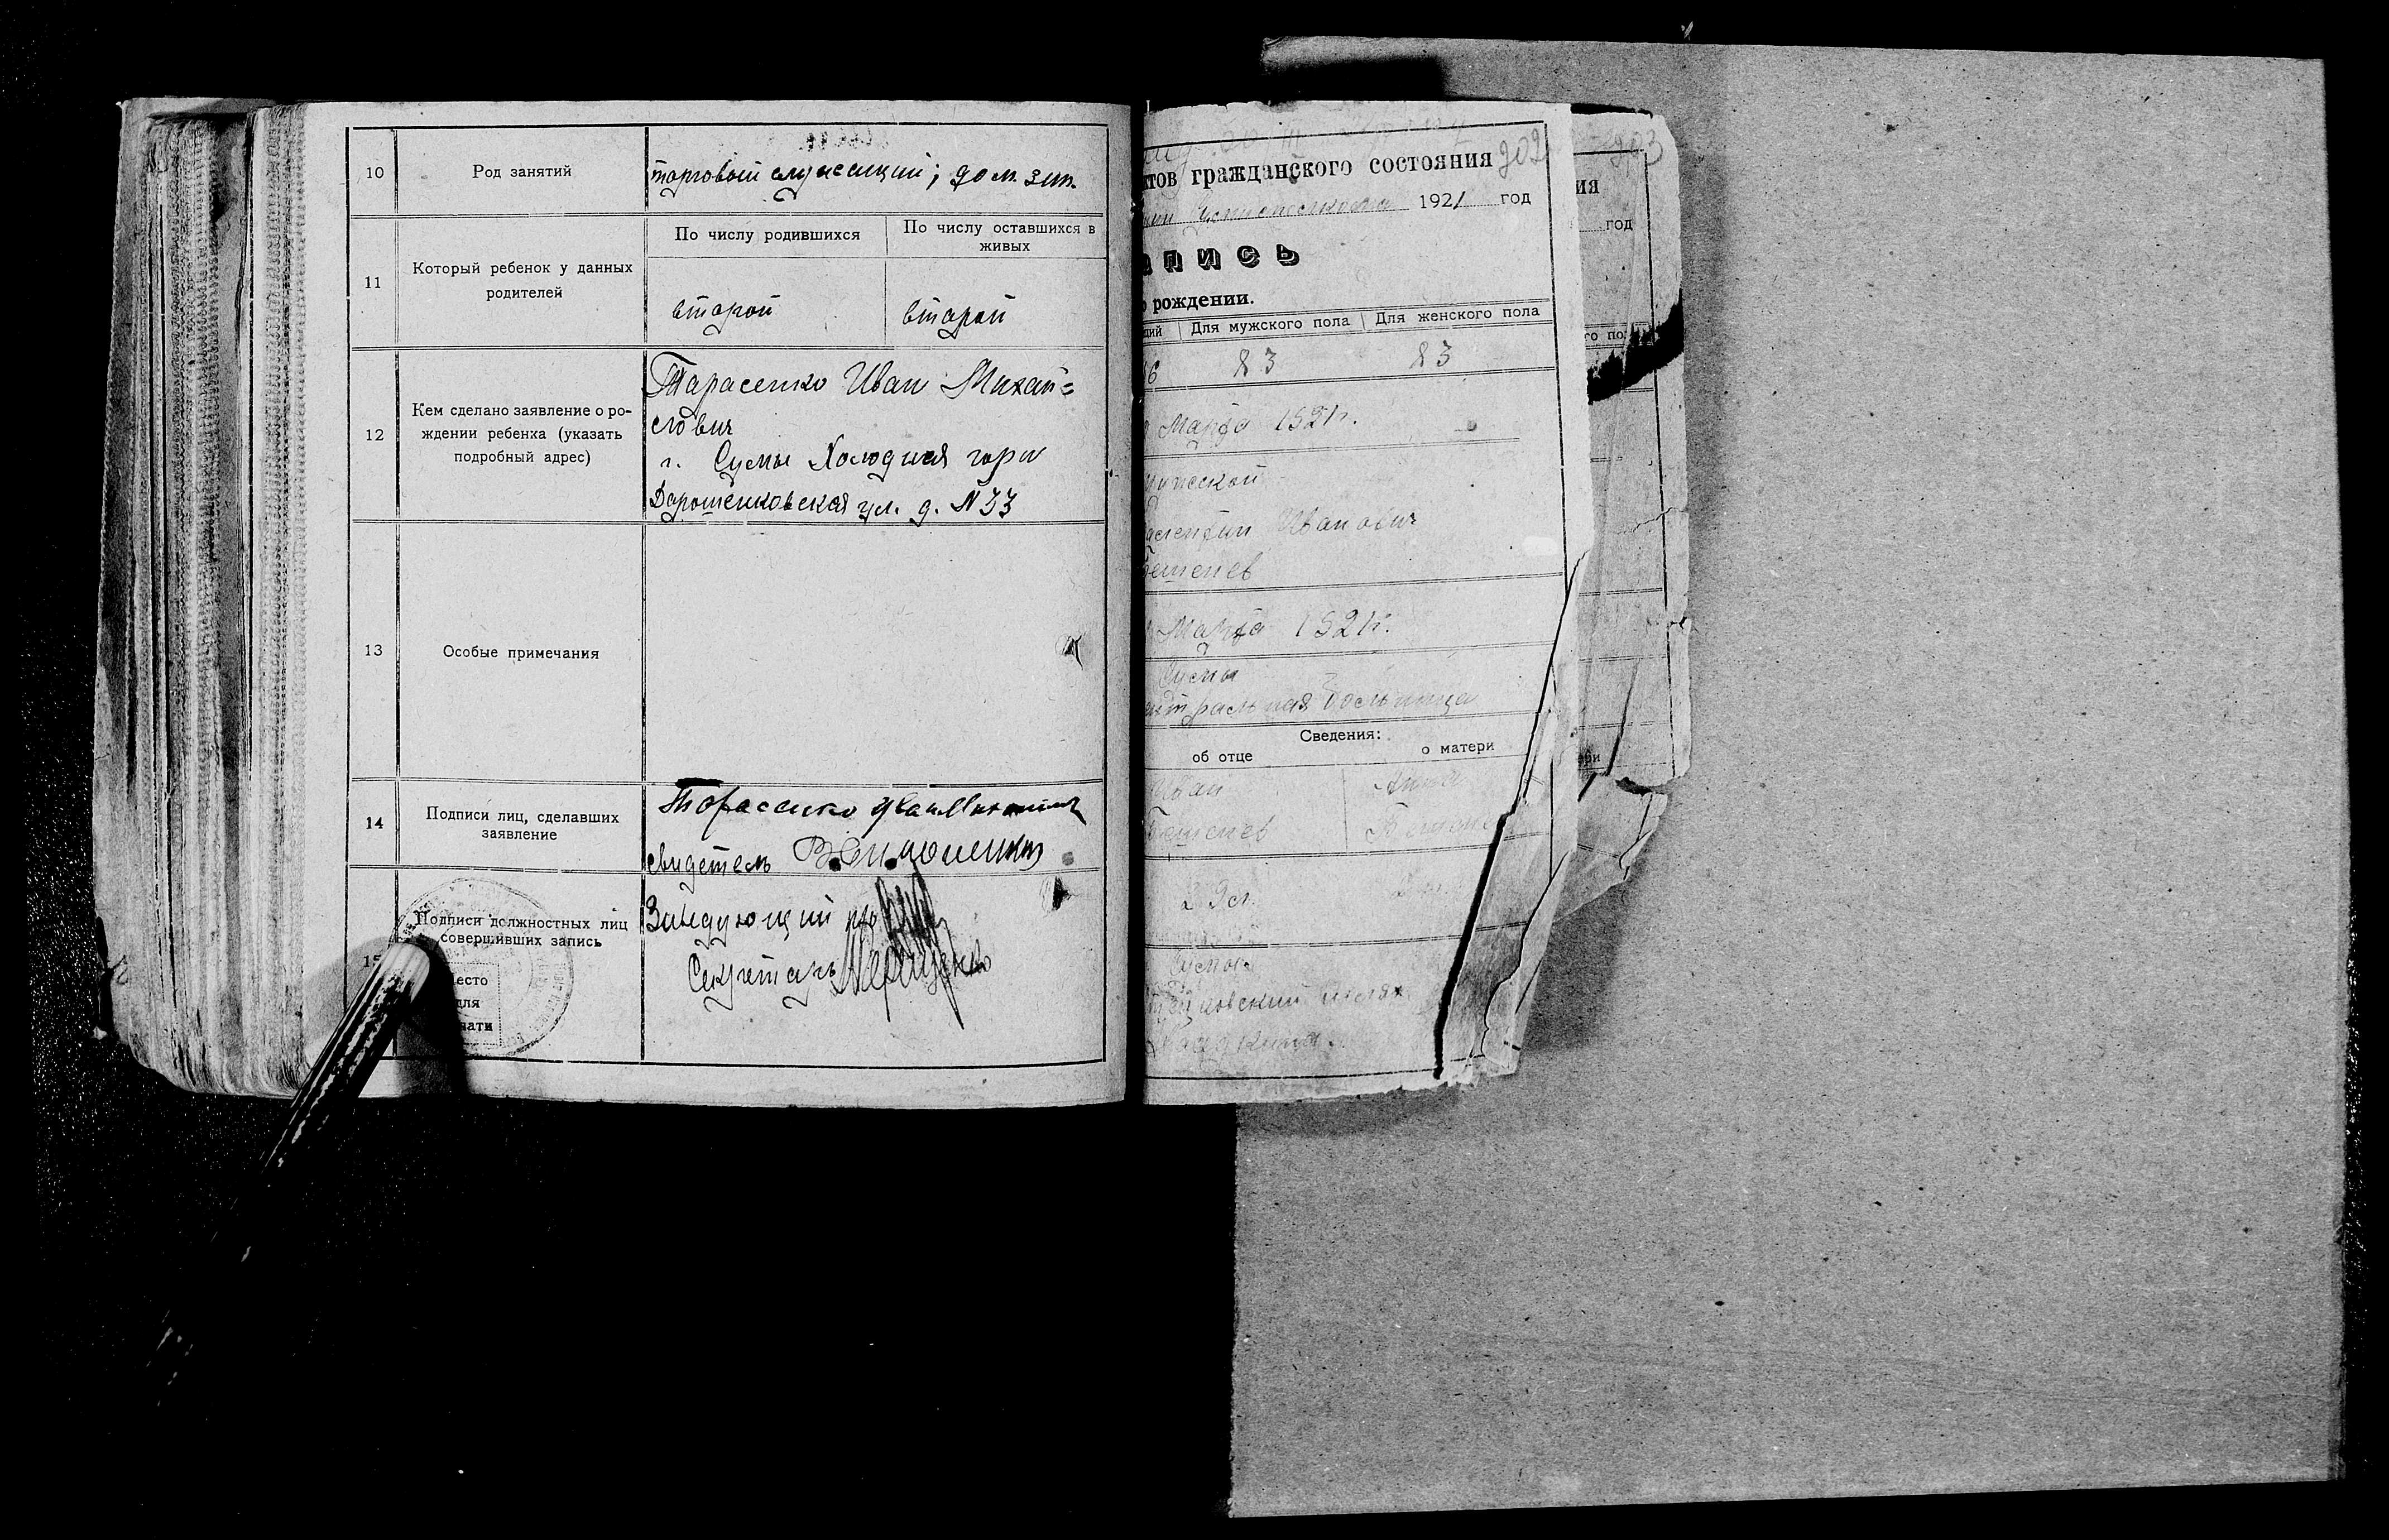 10
Род занятий
торговый служащий; дом. зан.
11
Который ребенок у данных
родителей
По числу родившихся
По числу оставшихся в
живых
второй
второй
12
Кем сделано заявление о ро-
ждении ребенка (указать
подробный адрес)
Тарасенко Иван Михай=
лович
г. Сумы Холодная гора
Дорошенковская ул. д. N 33
13
Особые примечания
14
Подписи лиц, сделавших
заявление
Тарасенко Иван
свидетель
15
Подписи должностных лиц
совершивших запись
есто
для
чати
Заведующий
Секретарь
902
ктов гражданского состояния
1921 год
апись
о рождении.
щий
Для мужского пола
Для женского пола
6
83
83
Марта 1921 г.
ужской
алентин Иванович
ешенев
Марта 1921 г.
Сумы
нтральная больница
Сведения:
об отце
о матери
Иван
Анна
ешенев
Сумы
903
ия
год
го по
ери